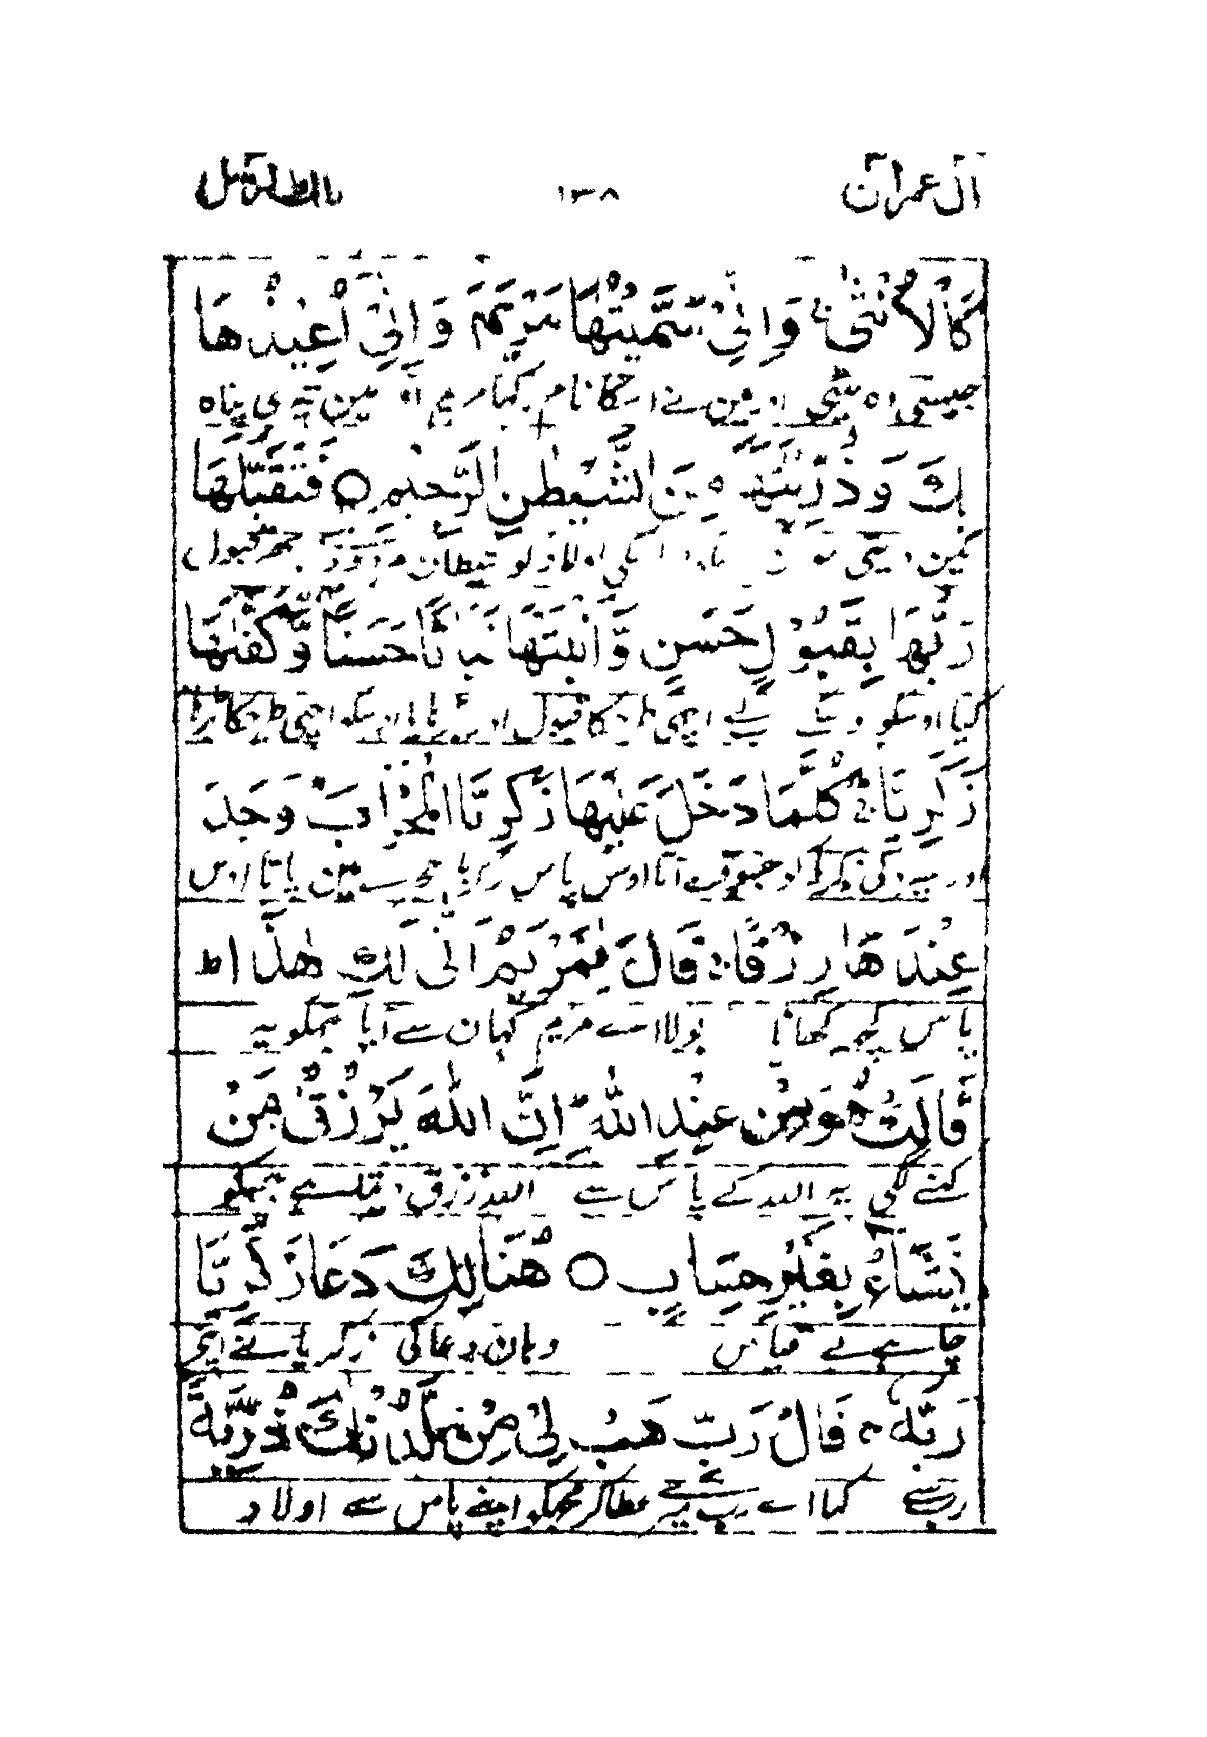 آل عمران ١٣٨ تلك الرسل
كَالْاُنْثٰى ۚ وَاِنِّىْ سَمَّيْتُهَا مَرْيَمَ وَ اِنِّىْٓ اُعِيْذُهَا
جیسی وہ بیٹی اور مین نے اسکا نام رکہا مریم اور مین تیری پناہ
بِكَ وَ ذُرِّيَّتَهَا مِنَ الشَّيْطٰنِ الرَّجِيْمِ ○ فَتَقَبَّلَهَا
مین دیتی اسکی اولاد کو شیطان مردود پہر قبول
رَبُّهَا بِقَبُوْلٍ حَسَنٍ وَّ اَنْۢبَتَهَا نَبَاتًا حَسَنًا وَّ كَفَّلَهَا
کیا اوسکو اچہی طرح کا قبول اور بڑہایا اوسکو اچہی طرح کا بڑہانا
زَكَرِيَّا ۚ كُلَّمَا دَخَلَ عَلَيْهَا زَكَرِيَّا الْمِحْرَابَ وَجَدَ
اور سپرد کی زکریا کو جسوقت آتا اوس پاس زکریا حجرے مین پاتا اوس
عِنْدَهَا رِزْقًا ۚ قَالَ يٰمَرْيَمُ اَنّٰى لَكِ هٰذَا ؕ
پاس کچہ کہانا بولا اے مریم کہان سے آیا تجہکو یہ
قَالَتْ هُوَ مِنْ عِنْدِ اللّٰهِ ؕ اِنَّ اللّٰهَ يَرْزُقُ مَنْ
کہنے لگی یہ اللہ کے پاس سے اللہ رزق دیتا ہے جسکو
يَّشَآءُ بِغَيْرِ حِسَابٍ ○ هُنَالِكَ دَعَا زَكَرِيَّا
چاہے بے قیاس وہان دعا کی زکریا نے اپنی
رَبَّهٗ ۚ قَالَ رَبِّ هَبْ لِىْ مِنْ لَّدُنْكَ ذُرِّيَّةً
رب سے کہا اے رب میرے عطا کر مجہکو اپنے پاس سے اولاد